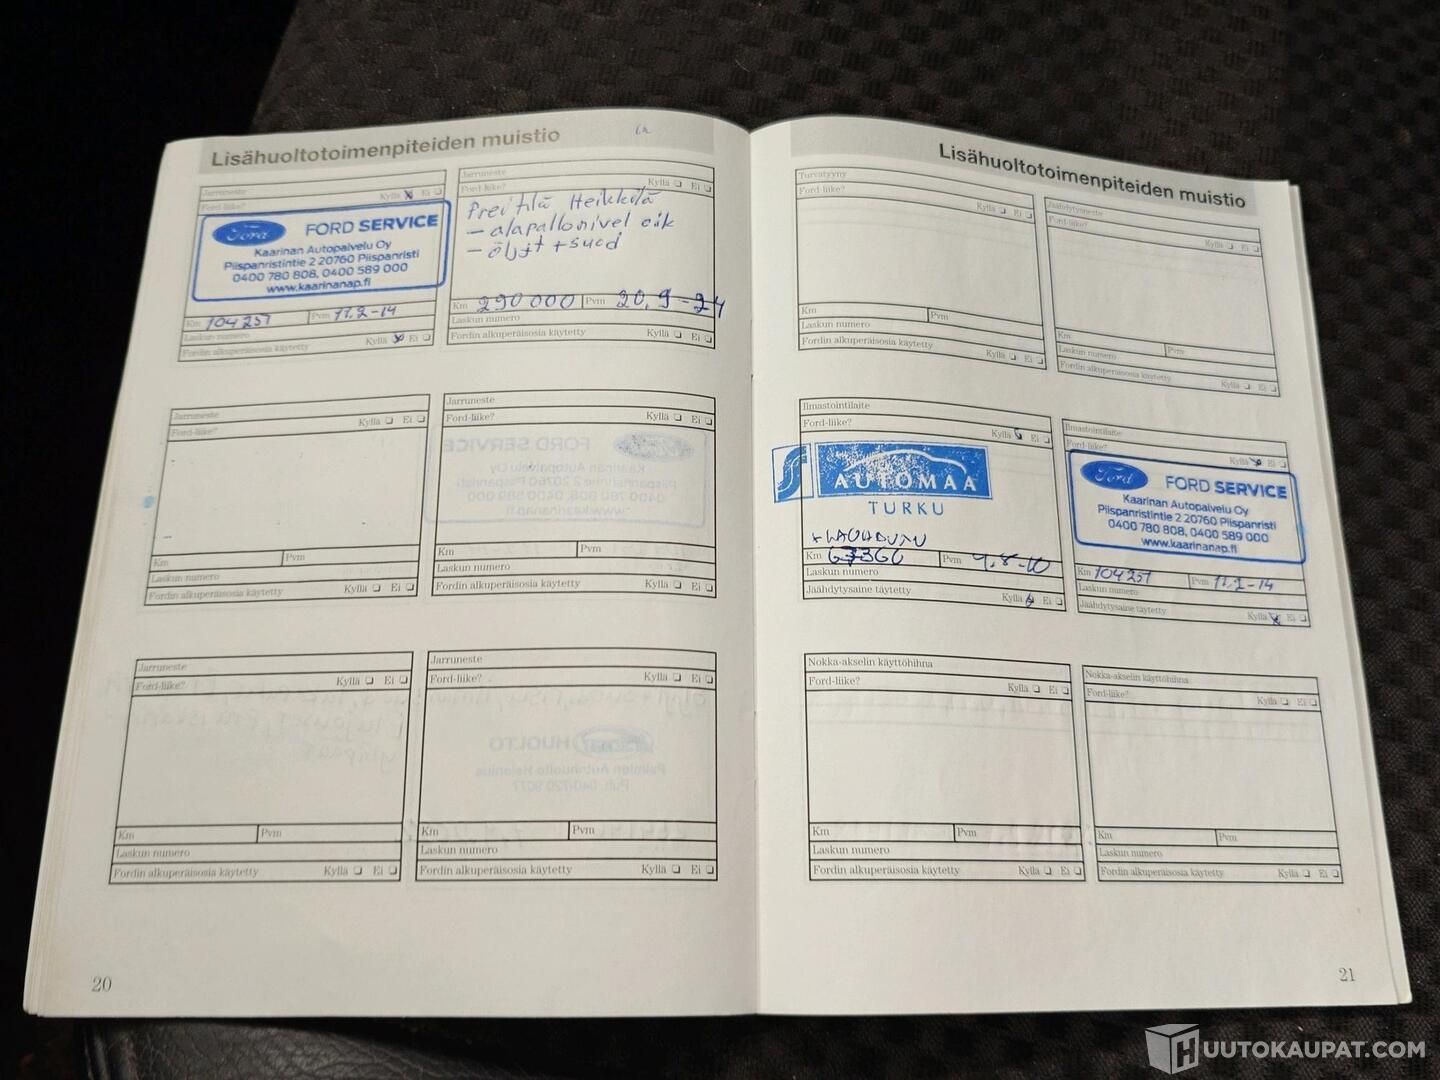 Lisähuoltotoimenpiteiden muistio
Jarruneste
Kyllä Ei
Ford-liike?
Ford
FORD SERVICE
Kaarinan Autopalvelu Oy
Piispanristintie 2 20760 Piispanristi
0400 780 808, 0400 589 000
www.kaarinanap.fi
Km 104257 Pvm 17.2-14
Laskun numero
Fordin alkuperäisosia käytetty Kyllä Ei
Jarruneste
Ford-liike? Kyllä Ei
Heikkilä
- alapallonivel oik
- öljyt + suod
Km 290000 Pvm 20.9-24
Laskun numero
Fordin alkuperäisosia käytetty Kyllä Ei
Jarruneste
Ford-liike? Kyllä Ei
Km Pvm
Laskun numero
Fordin alkuperäisosia käytetty Kyllä Ei
Jarruneste
Ford-liike? Kyllä Ei
Km Pvm
Laskun numero
Fordin alkuperäisosia käytetty Kyllä Ei
Jarruneste
Ford-liike? Kyllä Ei
Km Pvm
Laskun numero
Fordin alkuperäisosia käytetty Kyllä Ei
Jarruneste
Ford-liike? Kyllä Ei
Km Pvm
Laskun numero
Fordin alkuperäisosia käytetty Kyllä Ei
20
Lisähuoltotoimenpiteiden muistio
Turvatyyny
Ford-liike?
Kyllä Ei
Km Pvm
Laskun numero
Fordin alkuperäisosia käytetty
Kyllä Ei
Jäähdytysneste
Ford-liike?
Kyllä Ei
Km Pvm
Laskun numero
Fordin alkuperäisosia käytetty
Kyllä Ei
Ilmastointilaite
Ford-liike?
Kyllä Ei
AUTOMAA
TURKU
Km 67360 Pvm 9.8-10
Laskun numero
Jäähdytysaine täytetty Kyllä Ei
Ilmastointilaite
Ford-liike?
Kyllä Ei
Ford
FORD SERVICE
Kaarinan Autopalvelu Oy
Piispanristintie 2 20760 Piispanristi
0400 780 808, 0400 589 000
www.kaarinanap.fi
Km 104257 Pvm 17.2-14
Laskun numero
Jäähdytysaine täytetty
Kyllä Ei
Nokka-akselin käyttöhihna
Ford-liike?
Kyllä Ei
Km Pvm
Laskun numero
Fordin alkuperäisosia käytetty Kyllä Ei
Nokka-akselin käyttöhihna
Ford-liike?
Kyllä Ei
Km Pvm
Laskun numero
Fordin alkuperäisosia käytetty Kyllä Ei
21
HUUTOKAUPAT.COM